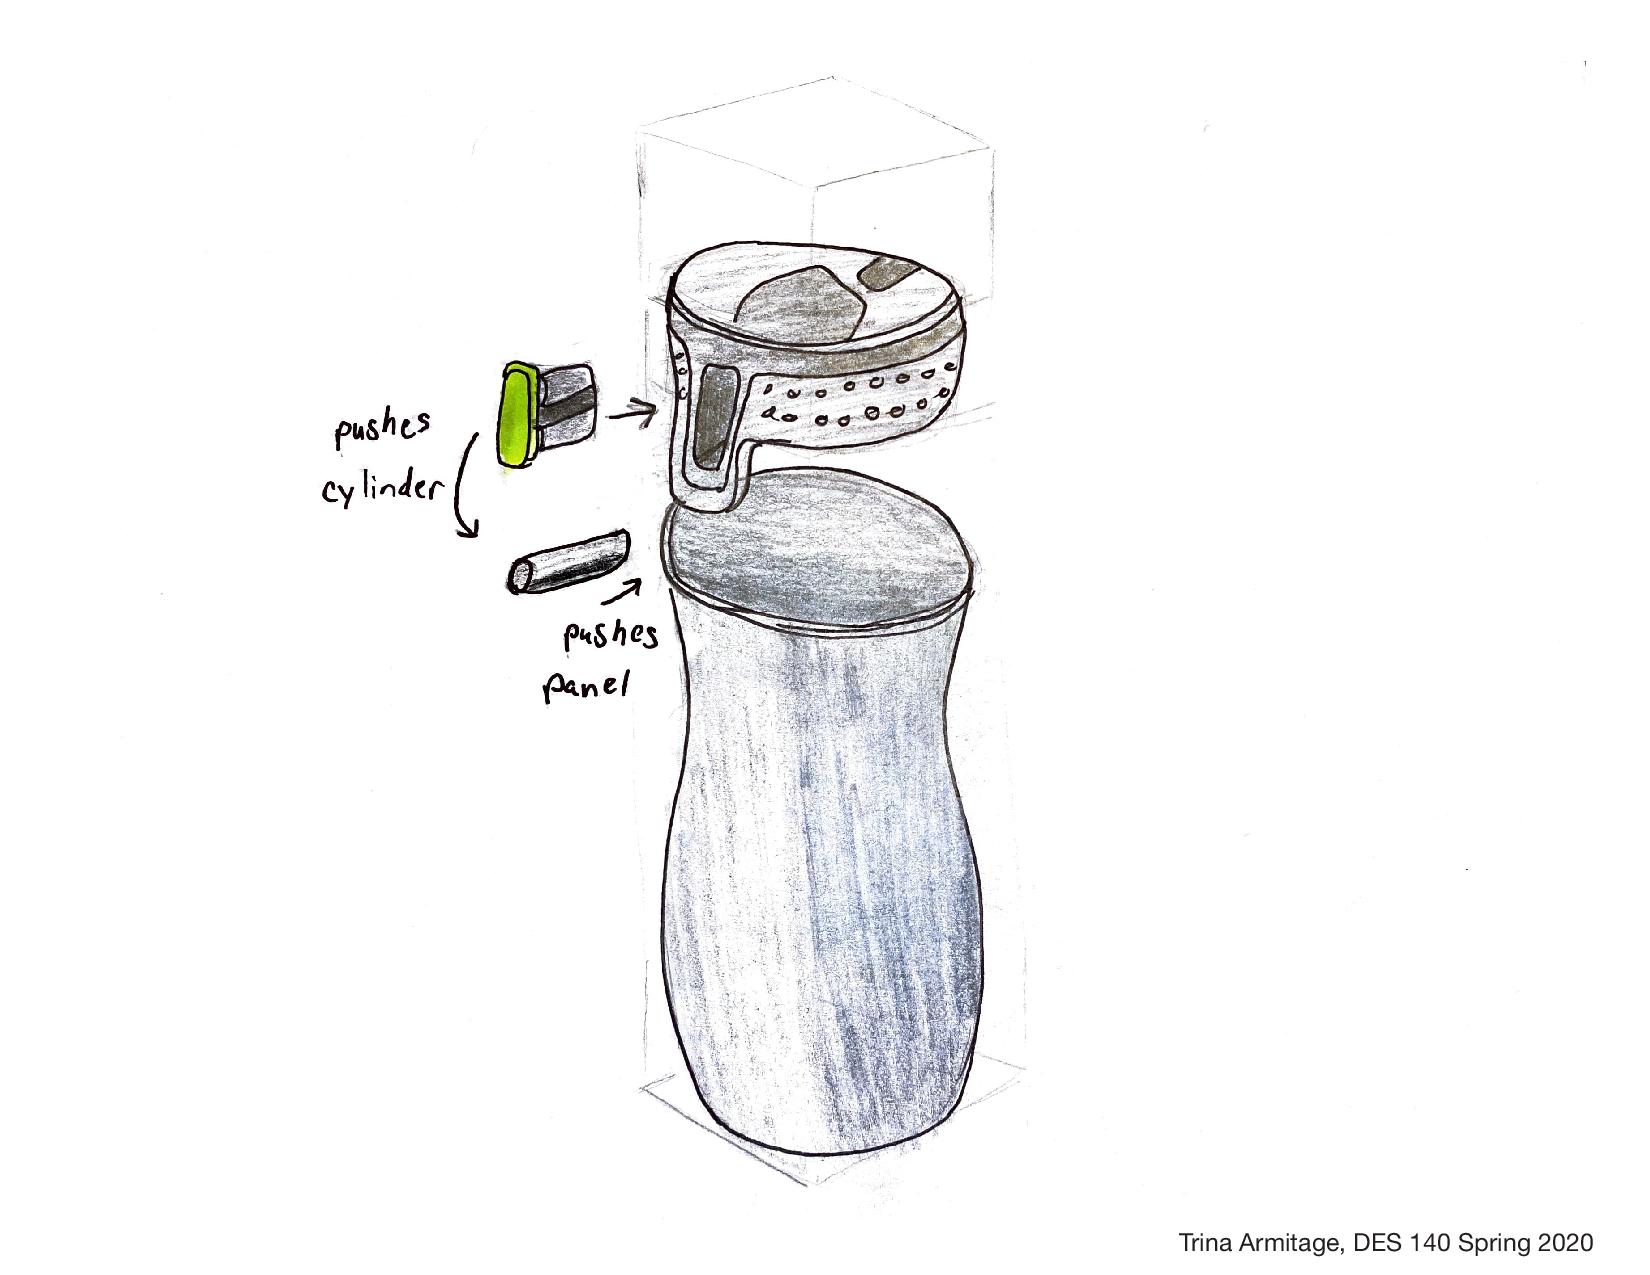 pushes
cylinder
pushes
panel
Trina Armitage, DES 140 Spring 2020